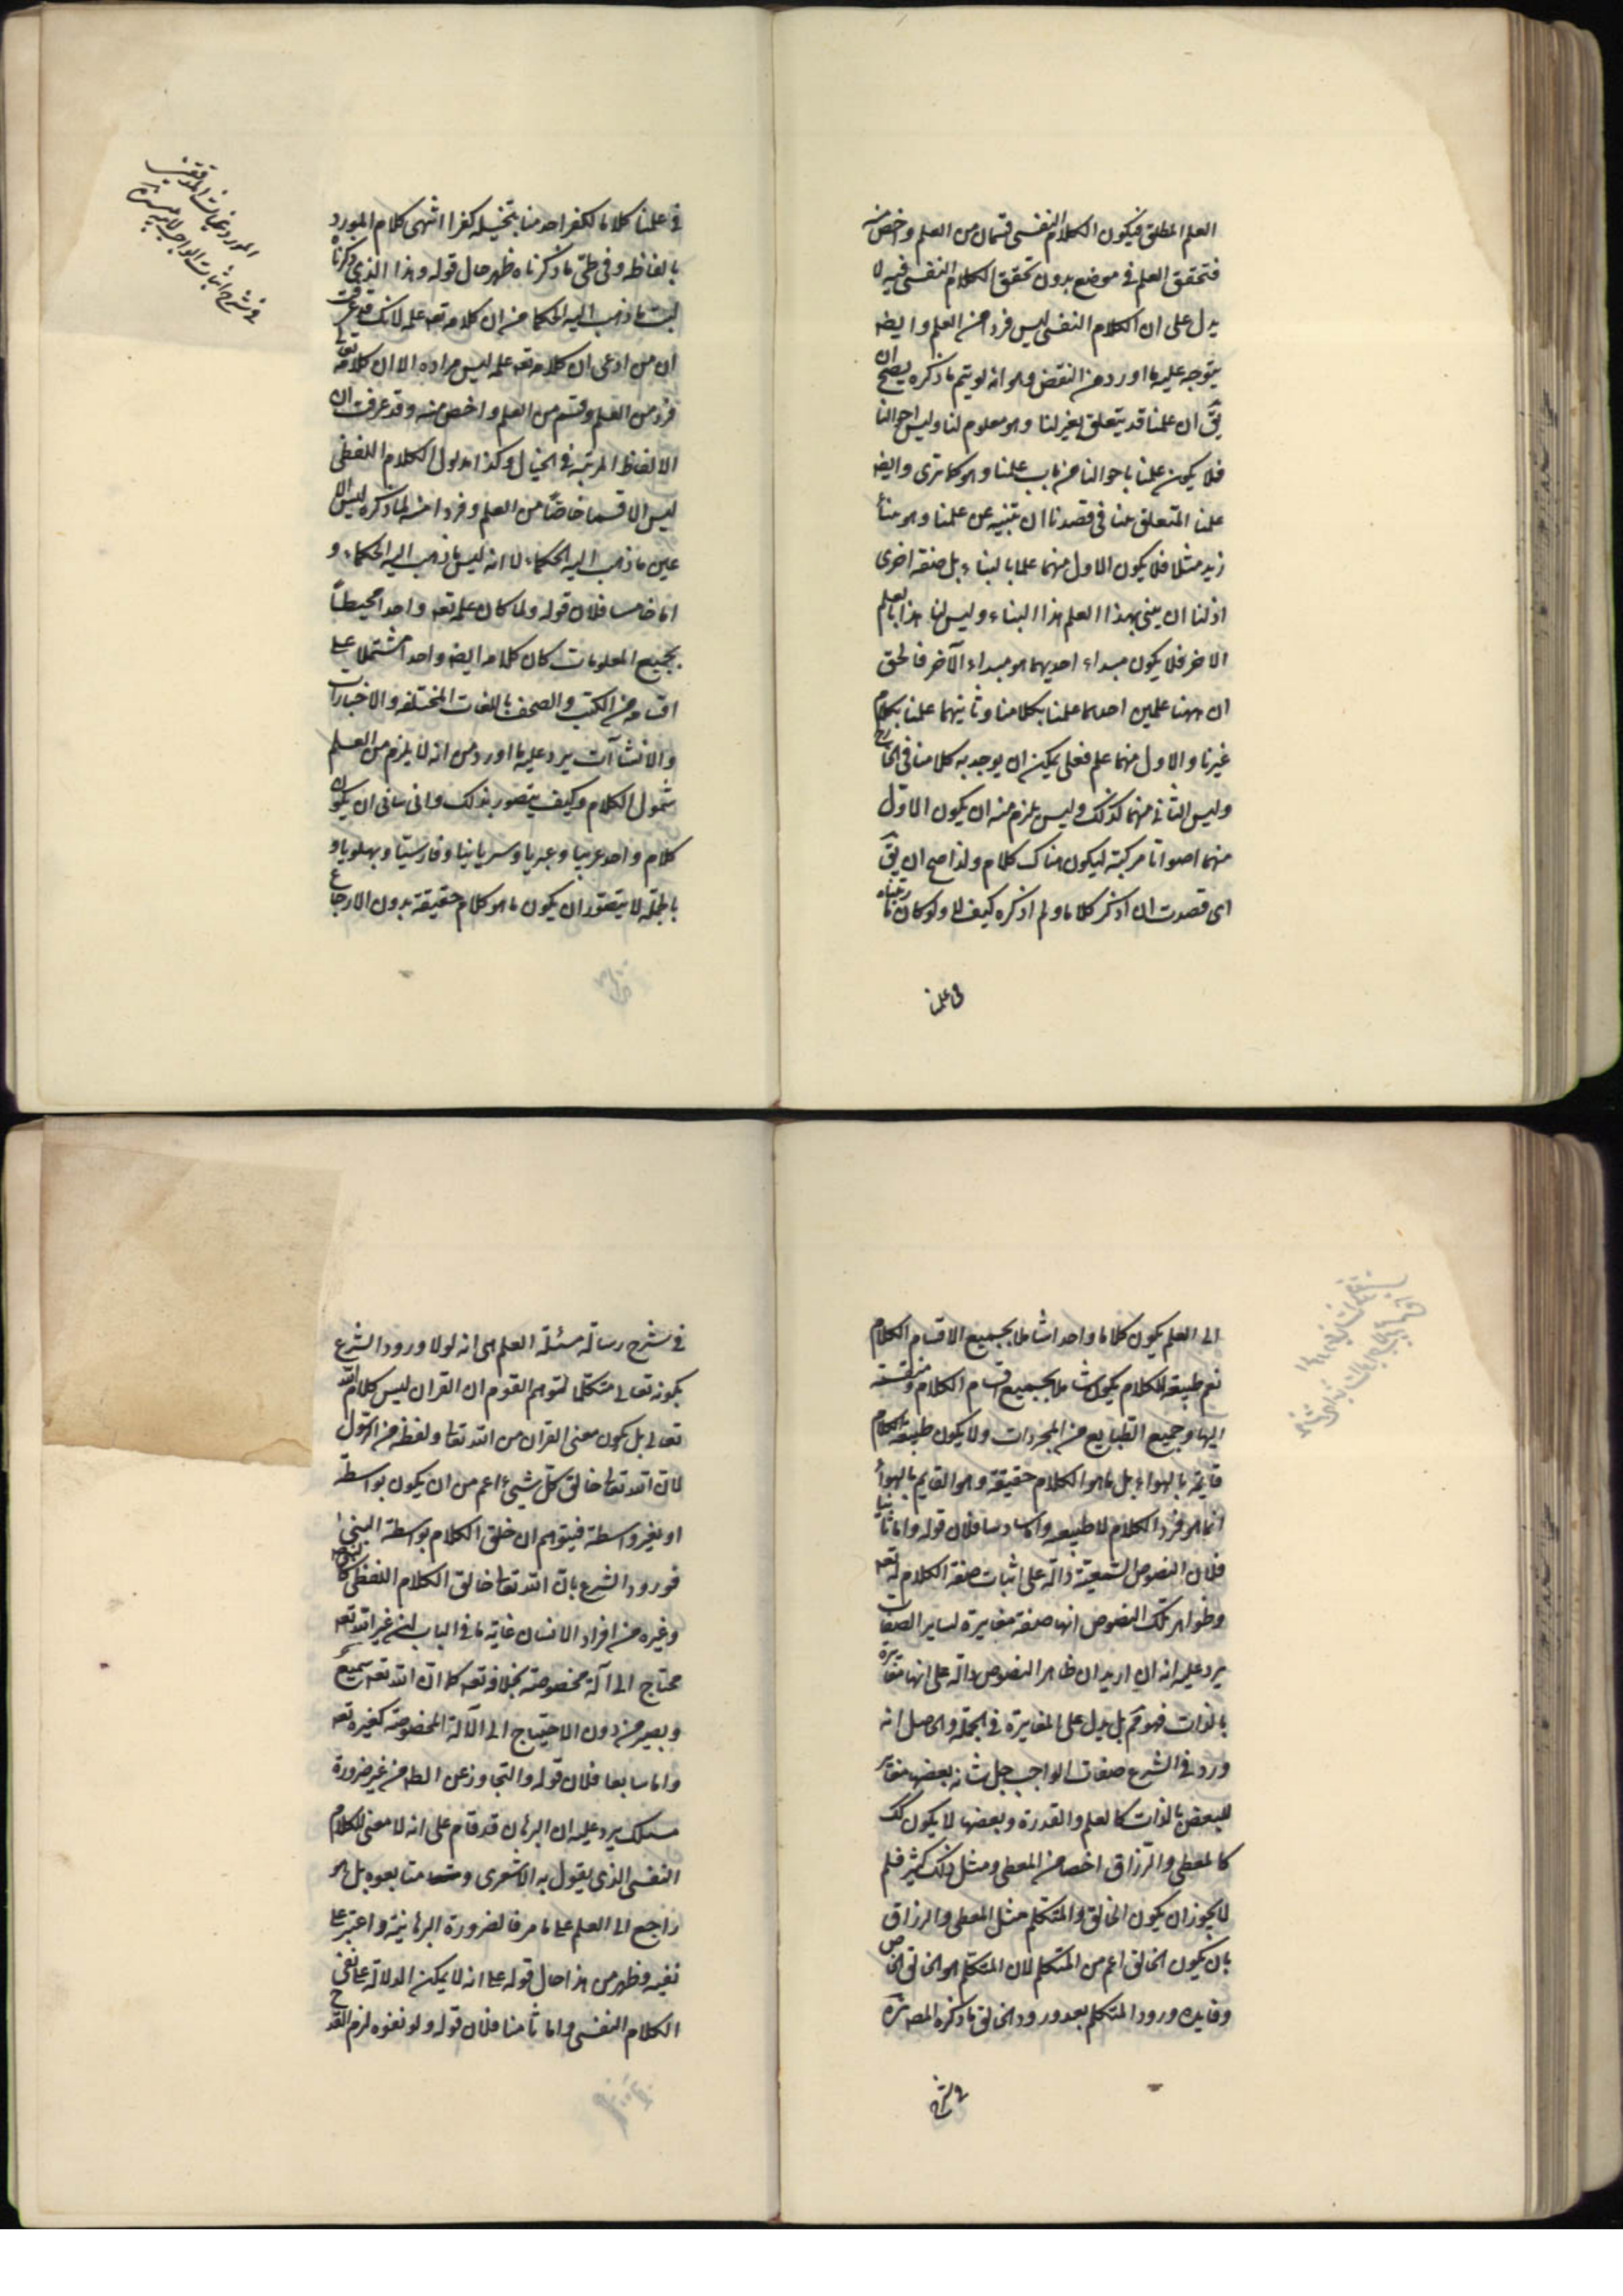 العلم المطلق فيكون الكلام النفسى قسمان من العلم واخص منه
فتحقق العلم فى موضع بدون تحقق الكلام النفسى فيه لا
يدل على ان الكلام النفسى ليس فردا من العلم وايضا
يتوجه عليه ما اورد من النقض وهو انه لو يتم ما ذكره يصح ان
يق ان علمنا قد يتعلق بغيرلنا وهو معلوم لنا وليس احوالنا
فلا يكون علمنا باحوالنا من باب علمنا وهو كما ترى وايضا
علمنا المتعلق بنا فى قصدنا ان تبنيه عن علمنا وهو بناء
زيد مثلا فلا يكون الاول منهما علما بالبناء بل صفة اخرى
اذ لنا ان يبنى بهذا العلم هذا البناء وليس لنا هذا بالعلم
الاخر فلا يكون مبداء احديهما هو مبداء الآخر فالحق
ان ههنا علمين احدهما علمنا بكلامنا وثانيهما علمنا بكلام
غيرنا والاول منهما علم فعلى يمكن ان يوجد به كلامنا فى الخارج
وليس الثانى منهما كذلك وليس يلزم منه ان يكون الاول
منهما اصواتا مركبة ليكون هناك كلام ولذا صح ان يق
اى قصدت ان اذكر كلاما ولم اذكره كيف لا ولو كان ما رتبناه
فى علمنا
فى علمنا كلاما لكفر احد منا بتخيله كفرا انتهى كلام المورد
بالفاظه وفى طى ما ذكرناه ظهر حال قوله وهذا الذى ذكرناه
ليت ما ذهب اليه الحكما من ان كلامه تعه علمه لانك قد عرفت
ان من ادعى ان كلامه تعه علمه ليس مراده الا ان كلامه تعالى
فرد من العلم وقسم من العلم واخص منه وقد عرفت ان
الالفاظ المرتبة فى الخيال وكذا مدلول الكلام اللفظى
ليس الا قسما خاصا من العلم وفردا منه لما ذكره ليس الا
عين ما ذهب اليه الحكماء لا انه ليس ما ذهب اليه الحكماء و
اما خامسا فلان قوله ولما كان علمه تعه واحدا محيطا
بجميع المعلومات كان كلامه ايضا واحدا مشتملا على
اقسامه من الكتب والصحف باللغات المختلفه والاخبارات
والانشاآت يرد عليه ما اورد من انه لا يلزم من شمول العلم
شمول الكلام وكيف يتصور بذلك وانى يتانى ان يكون
كلام واحد عربيا وعبريا وسريانيا وفارسيا وپهلويا و
بالجملة لا يتصور ان يكون ما هو كلام حقيقة بدون الارجاع
المورد غياث المدققين
فى شرح اثبات الواجب
الى العلم يكون كلاما واحدا شاملا بجميع الاقسام الكلام
نعم طبيعة الكلام يكون شاملا بجميع اقسام الكلام ومنقسمة
اليها وجميع الطبايع من المجردات ولا يكون طبيعة الكلام
قايمة بالهواء بل ما هو الكلام حقيقة وهو القايم بالهواء
انما هو فرد الكلام لا طبيعه واما سادسا فلان قوله واما ثانيا
فلان النصوص السمعية دالة على اثبات صفة الكلام له تعه
وظواهر تلك النصوص انها صفة مغايرة لساير الصفات
يرد عليه انه ان اريد ان ظاهر النصوص دالة على انها مغايرة
بالذات فهو مم بل يدل على المغايرة فى الجملة والحاصل انه
ورد فى الشرع صفات الواجب جل شانه بعضها مغاير
للبعض بالذات كالعلم والقدرة وبعضها لا يكون كك
كالمعطى والرزاق اخص من المعطى ومثل ذلك كثير فلم
لا يجوز ان يكون الخالق والمتكلم مثل المعطى والرزاق
بان يكون الخالق اعم من المتكلم لان المتكلم هو الخالق الخاص
وفايده ورود المتكلم بعد ورود الخالق ما ذكره المصنف
فى شرح
فى شرح رسالة مسئلة العلم هى انه لولا ورود الشرع
بكونه تعالى متكلما لتوهم القوم ان القران ليس كلام الله
تعالى بل يكون معنى القران من الله تعالى ولفظه من الرسول
لان الله تعالى خالق كل شىء اعم من ان يكون بواسطة
او بغير واسطة فيتوهم ان خلق الكلام بواسطة النبى
فورود الشرع بان الله تعالى خالق الكلام اللفظى كالنبى
وغيره من افراد الانسان غاية ما فى الباب ان غير الله تعه
محتاج الى آلة مخصوصة بخلافه تعه كما ان الله تعه سميع
وبصير من دون الاحتياج الى الآلة المخصوصة كغيره تعه
واما سابعا فلان قوله والتجاوز عن الظ من غير ضرورة
مسلك يرد عليه ان البرهان قد قام على انه لا معنى للكلام
النفسى الذى يقول به الاشعرى ومتابعوه بل هو
راجع الى العلم على ما مر فالضرورة البرهانية واعتبر على
نفيه وظهر من هذا حال قوله على انه لا يمكن الدلالة على نفى
الكلام النفسى واما ثامنا فلان قوله ولو نفوه لزم القدح